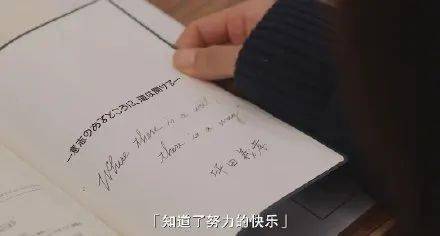 ―意志のあるところに、道は開ける―
Where there is a will,
there is a way
坪田義孝
「知道了努力的快乐」